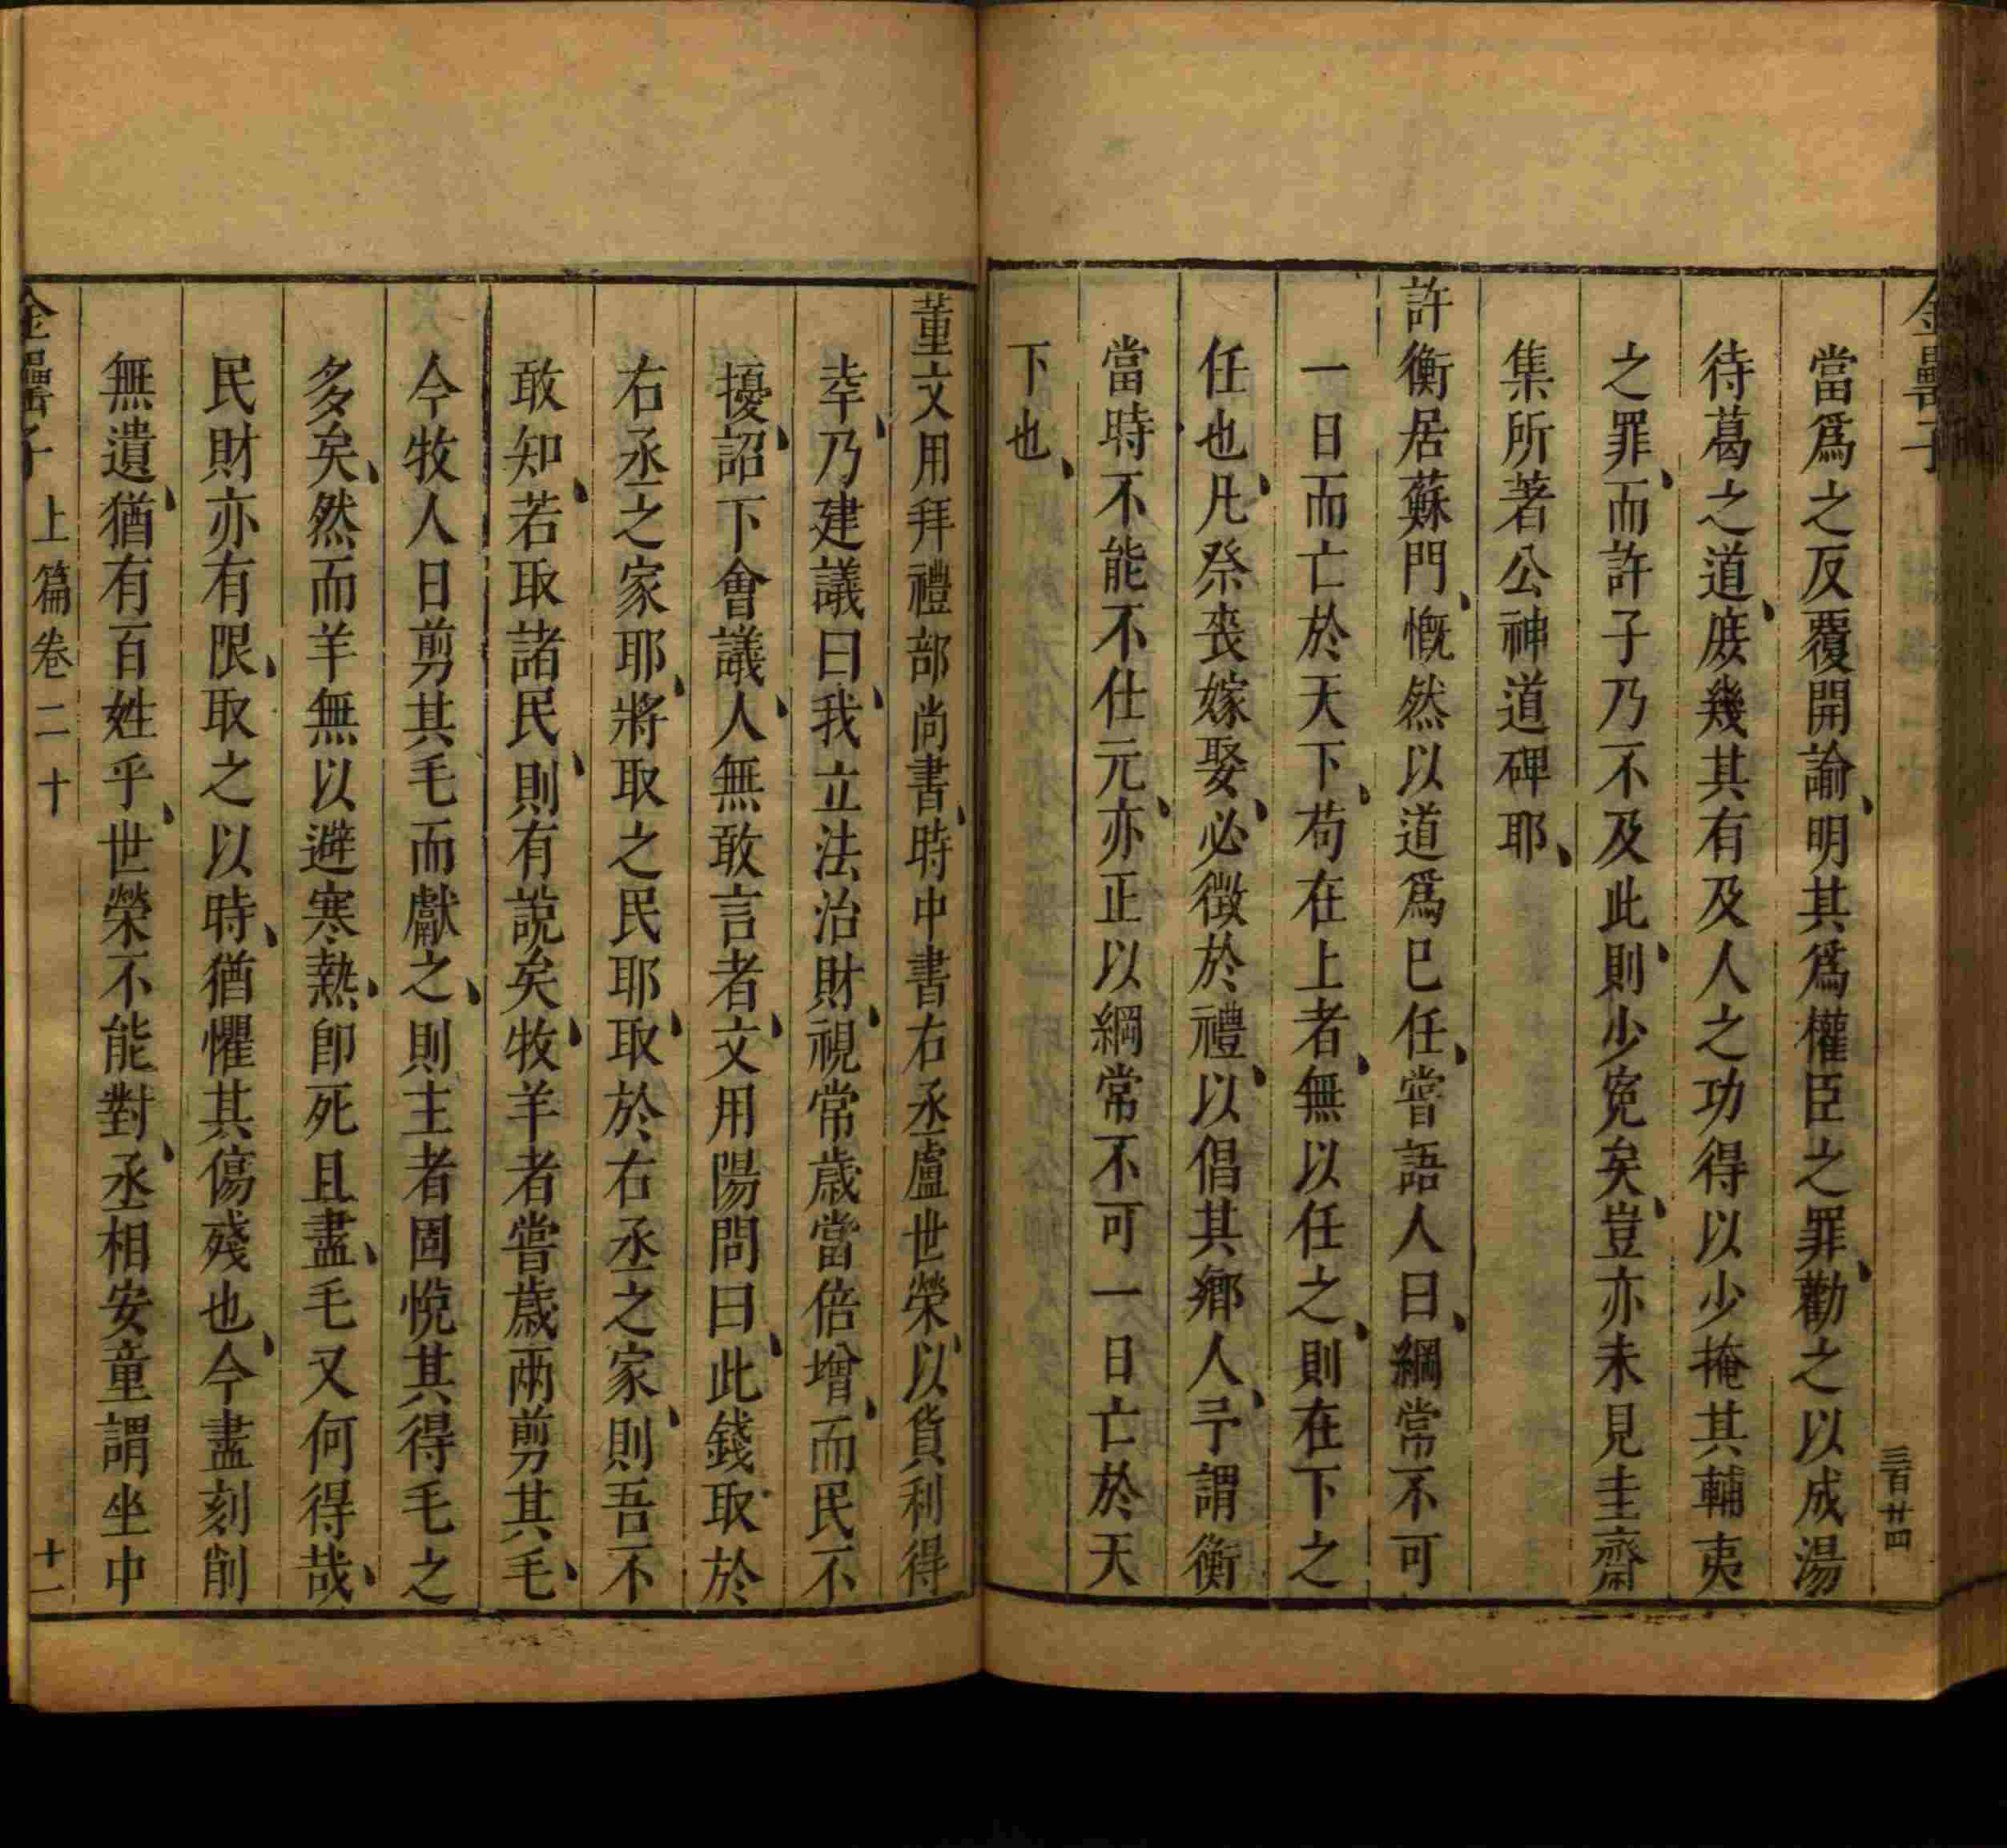 金罍子
三百廿四
當爲之反覆開諭、明其爲權臣之罪、勸之以成湯
待葛之道、庻幾其有及人之功得以少掩其輔夷
之罪、而許子乃不及此、則少寃矣、豈亦未見圭齋
集所著公神道碑耶、
許衡居蘇門、慨然以道爲已任、嘗語人曰、綱常不可
一日而亡於天下、苟在上者、無以任之、則在下之
任也、凡祭喪嫁娶、必徴於禮、以倡其鄉人、予謂衡
當時不能不仕元、亦正以綱常不可一日亡於天
下也、
董文用拜禮部尚書、時中書右丞盧世榮、以貨利得
幸、乃建議曰、我立法治財、視常歳當倍增、而民不
擾、詔下會議、人無敢言者、文用陽問曰、此錢取於
右丞之家耶、將取之民耶、取於右丞之家、則吾不
敢知、若取諸民、則有說矣、牧羊者嘗歳兩剪其毛、
今牧人日剪其毛而獻之、則主者固悅其得毛之
多矣、然而羊無以避寒熱、卽死且盡、毛又何得哉、
民財亦有限、取之以時、猶懼其傷殘也、今盡刻削
無遺、猶有百姓乎、世榮不能對、丞相安童謂坐中
金罍子 上篇卷二十 十一